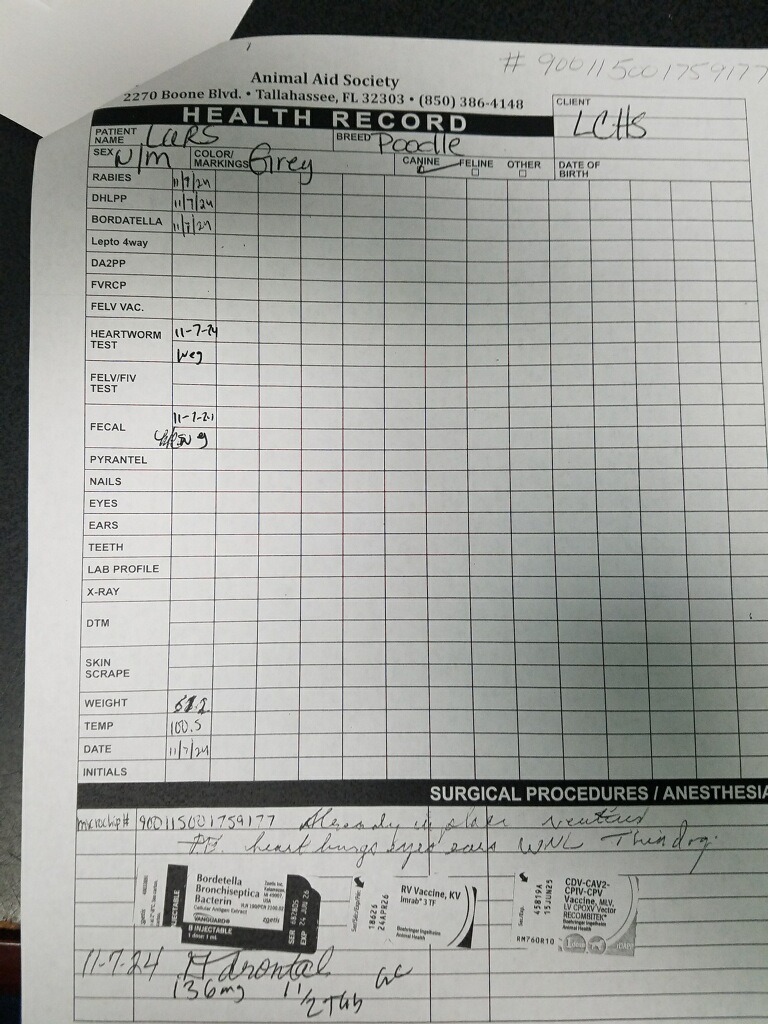 # 900115001759177
Animal Aid Society
2270 Boone Blvd. • Tallahassee, FL 32303 • (850) 386-4148
HEALTH RECORD
CLIENT
LCHS
PATIENT NAME LARS
BREED Poodle
SEX N/M
COLOR/ MARKINGS Grey
CANINE FELINE OTHER
DATE OF BIRTH
RABIES 11/7/24
DHLPP 11/7/24
BORDATELLA 11/7/24
Lepto 4way
DA2PP
FVRCP
FELV VAC.
HEARTWORM TEST 11-7-24
Neg
FELV/FIV TEST
FECAL 11-7-24
PYRANTEL
NAILS
EYES
EARS
TEETH
LAB PROFILE
X-RAY
DTM
SKIN SCRAPE
WEIGHT
TEMP 100.5
DATE 11/7/24
INITIALS
SURGICAL PROCEDURES / ANESTHESIA
microchip# 900115001759177 Already in place neutered
P.E. heart lungs eyes ears WNL Thin dog.
Bordetella
Bronchiseptica
Bacterin
Cellular Antigen Extract
VANGUARD
zoetis
INJECTABLE
B INJECTABLE
1 dose: 1 mL
EXP 24 JUN 26
RV Vaccine, KV
Imrab 3 TF
18626
24APR26
Boehringer Ingelheim
Animal Health
CDV-CAV2-
CPIV-CPV
Vaccine, MLV,
LV CPOXV Vector
RECOMBITEK
45819A
15JUN25
Boehringer Ingelheim
Animal Health
RM760R10
11-7-24 drontal GC
136mg 1 1/2 Tab